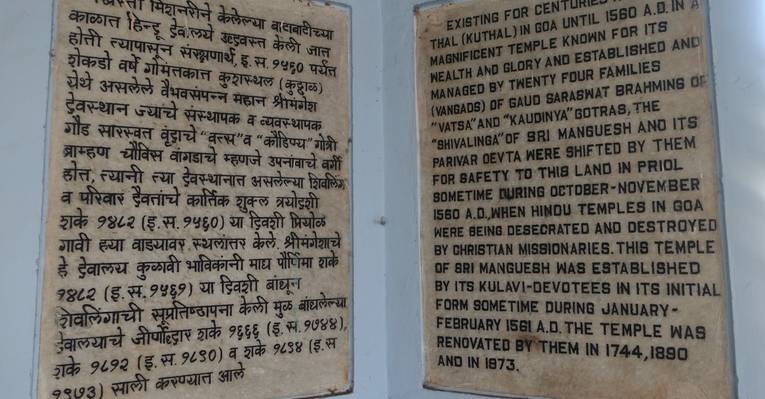 ख्रिस्ती मिशनरींने केलेल्या वादावादीच्या
काळात हिन्दू देवालये उद्धवस्त केली जात
होती त्यापासून संरक्षणार्थ, इ. स. १५६० पर्यंत
शेकडो वर्षे गोमंतकात कुशस्थल (कुठ्ठाळ)
येथे असलेले वैभवसंपन्न महान श्रीमंगेश
देवस्थान ज्याचे संस्थापक व व्यवस्थापक
गौड सारस्वत वृंदाचे "वत्स" व "कौंडिण्य" गोत्री
ब्राम्हण चौविस वांगडाचे म्हणजे उपनांवाचे वर्गी
होत, त्यानी त्या देवस्थानात असलेल्या शिवलिंग
व परिवार दैवतांचे कार्तिक शुक्ल त्रयोदशी
शके १४८२ (इ. स. १५६०) या दिवशी प्रियोळ
गावी ह्या वाड्यावर स्थलांतर केले. श्रीमंगेशाचे
हे देवालय कुळावी भाविकांनी माघ पौर्णिमा शके
१४८२ (इ. स. १५६१) या दिवशी बांधून
शिवलिंगाची सुप्रतिष्ठापना केली मुळ बांधलेल्या
देवालयाचे जीर्णोद्दार शके १६६६ (इ. स. १७४४),
शके १८१२ (इ. स. १८९०) व शके १८९४ (इ. स
१९७३) साली करण्यात आले
EXISTING FOR CENTURIES
THAL (KUTHAL) IN GOA UNTIL 1560 A.D. IN A
MAGNIFICENT TEMPLE KNOWN FOR ITS
WEALTH AND GLORY AND ESTABLISHED AND
MANAGED BY TWENTY FOUR FAMILIES
(VANGADS) OF GAUD SARASWAT BRAHMINS OF
"VATSA" AND "KAUDINYA" GOTRAS, THE
"SHIVALINGA" OF SRI MANGUESH AND ITS
PARIVAR DEVTA WERE SHIFTED BY THEM
FOR SAFETY TO THIS LAND IN PRIOL
SOMETIME DURING OCTOBER-NOVEMBER
1560 A.D., WHEN HINDU TEMPLES IN GOA
WERE BEING DESECRATED AND DESTROYED
BY CHRISTIAN MISSIONARIES. THIS TEMPLE
OF SRI MANGUESH WAS ESTABLISHED
BY ITS KULAVI-DEVOTEES IN ITS INITIAL
FORM SOMETIME DURING JANUARY-
FEBRUARY 1561 A.D. THE TEMPLE WAS
RENOVATED BY THEM IN 1744, 1890
AND IN 1973.